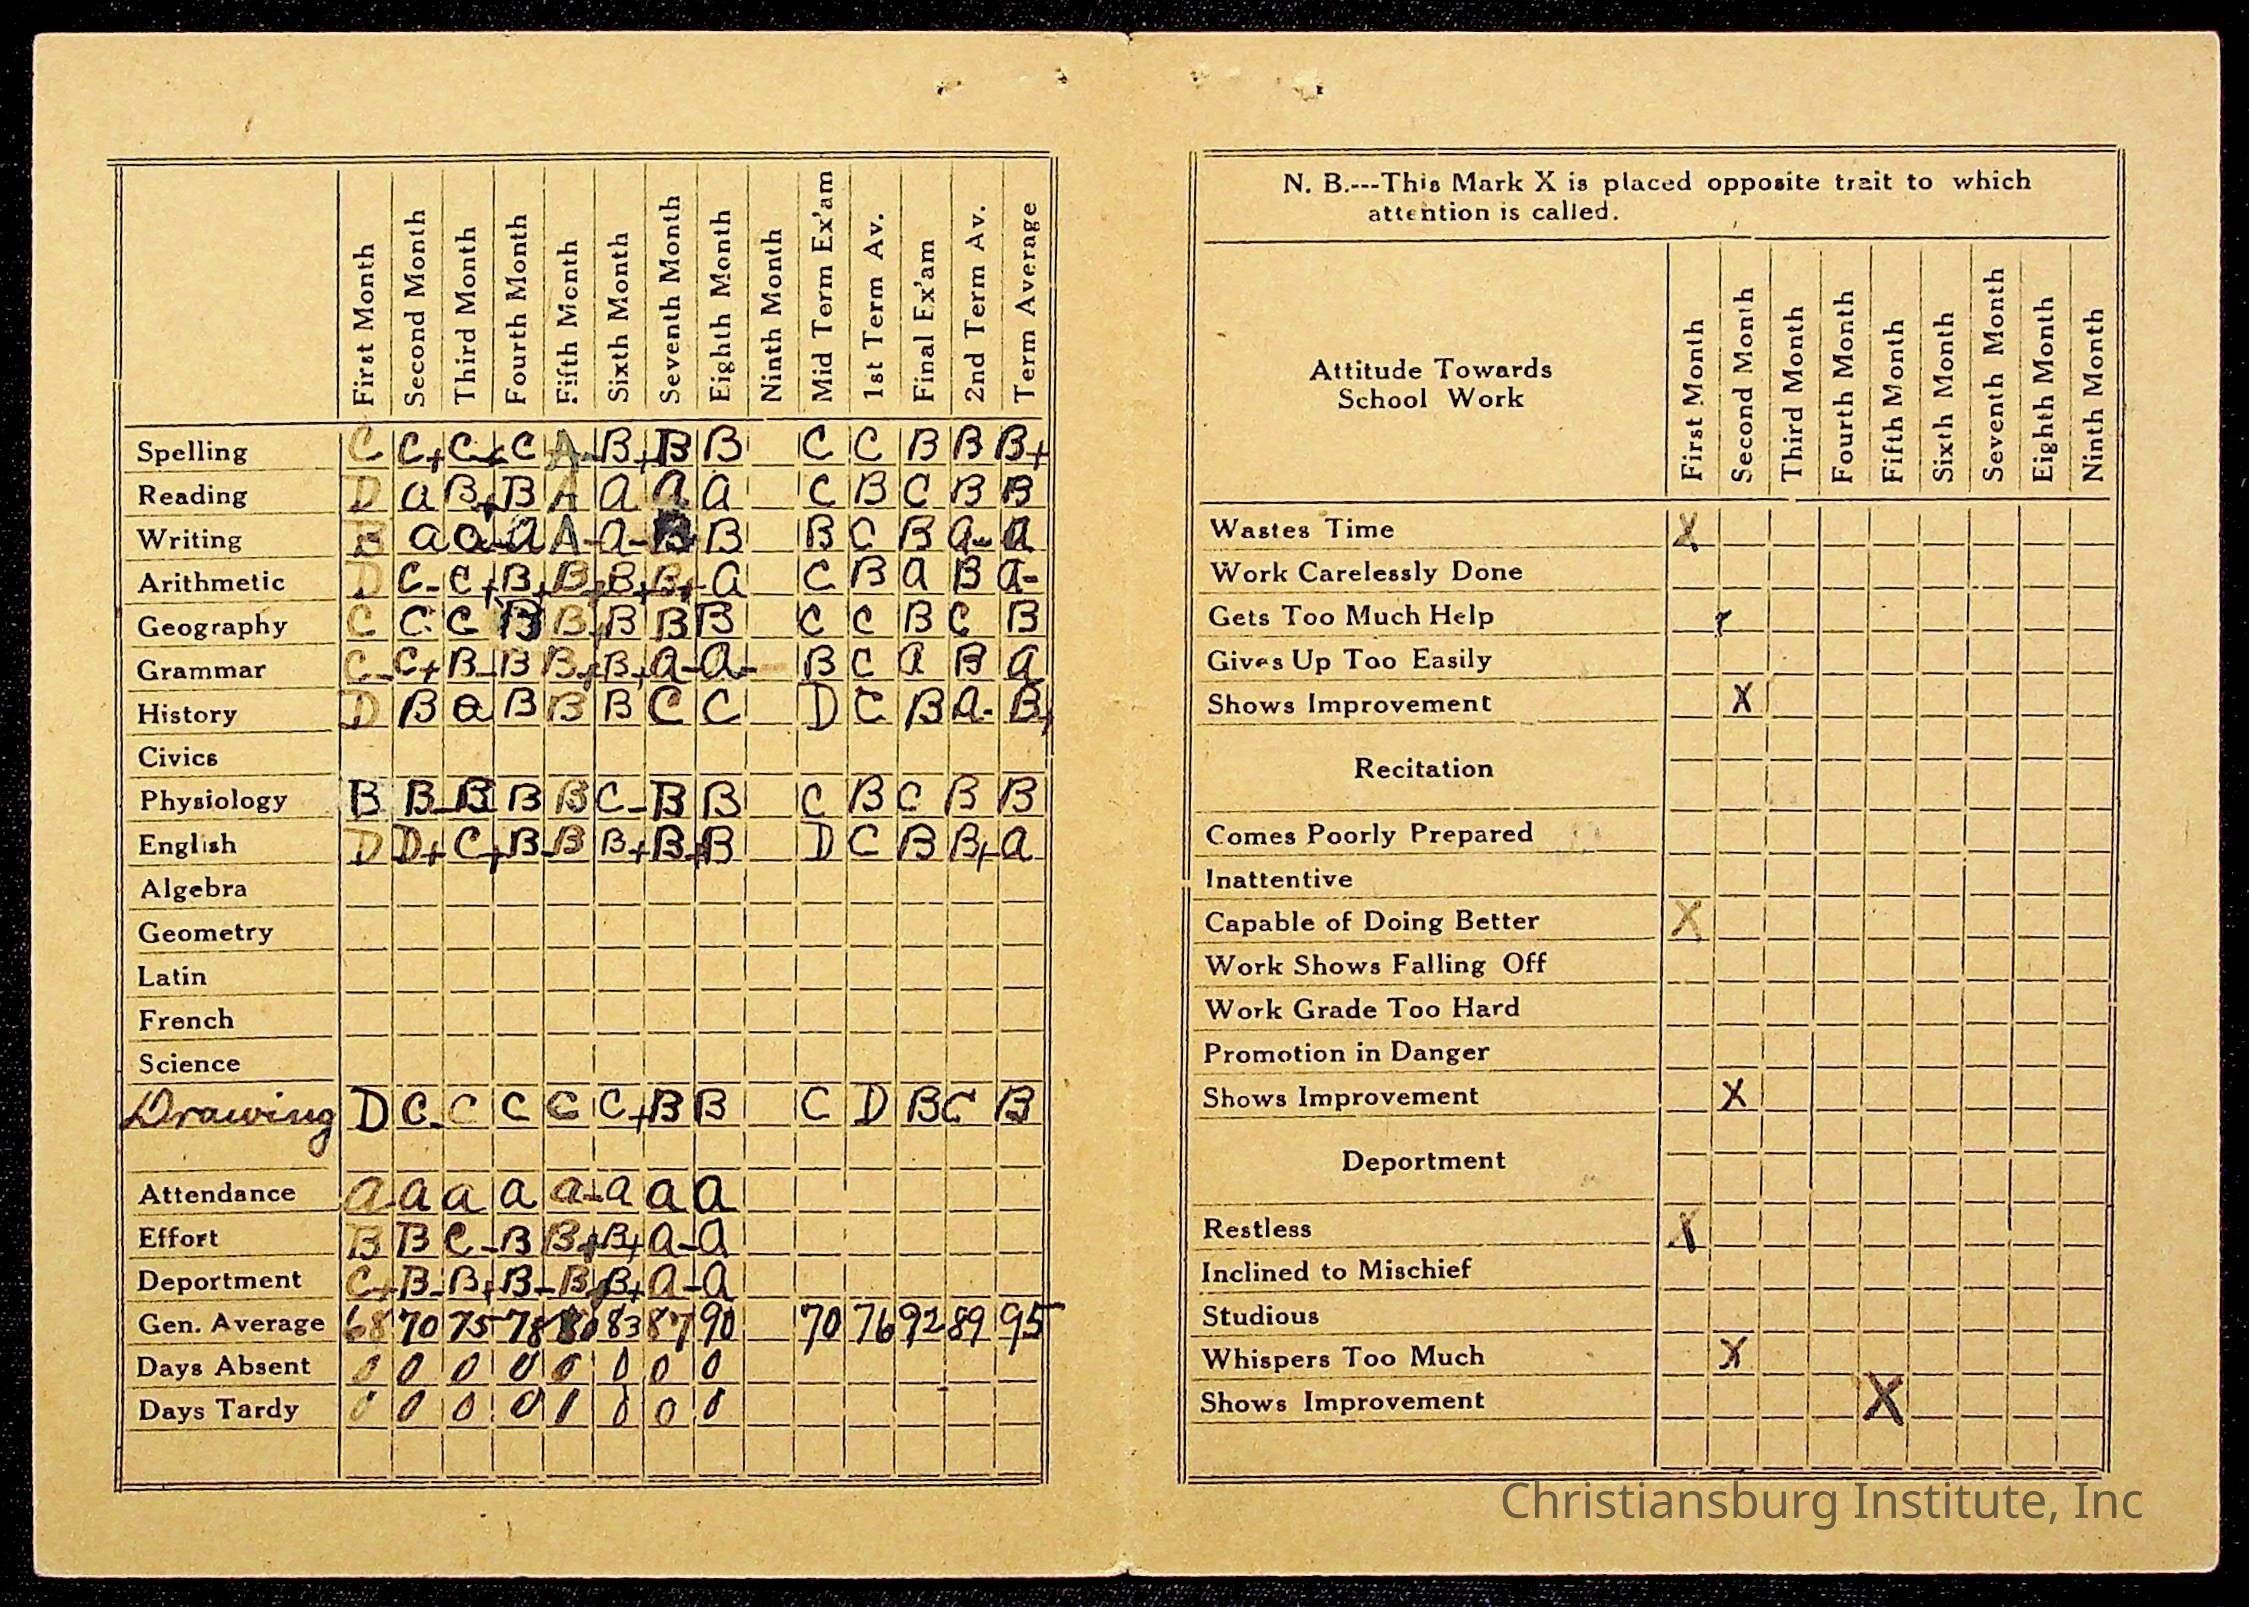 First Month Second Month Third Month Fourth Month Fifth Month Sixth Month Seventh Month Eighth Month Ninth Month Mid Term Ex'am 1st Term Av. Final Ex'am 2nd Term Av. Term Average
Spelling C C+ C C A- B+ B B C C B B B+
Reading D a B+ B A a a a C B C B B
Writing B a a- a A- a- B B B C B a- a
Arithmetic D C- C+ B+ B+ B+ B+ a C B a B a-
Geography C C C B B+ B B B C C B C B
Grammar C- C+ B- B B+ B+ a- a- B C a B a
History D B a B B B C C D C B a- B+
Civics
Physiology B B- B B B C- B B C B C B B
English D D+ C+ B- B B+ B+ B D C B B+ a
Algebra
Geometry
Latin
French
Science
Drawing D C- C C C C+ B B C D B C B
Attendance a a a a a- a a a
Effort B B C- B B+ B+ a- a
Deportment C+ B- B+ B- B B+ a- a
Gen. Average 68 70 75 78 80 83 87 90 70 76 92 89 95
Days Absent 0 0 0 0 0 0 0 0
Days Tardy 0 0 0 0 0 0 0
N. B.---This Mark X is placed opposite trait to which
attention is called.
Attitude Towards
School Work
First Month Second Month Third Month Fourth Month Fifth Month Sixth Month Seventh Month Eighth Month Ninth Month
Wastes Time X
Work Carelessly Done
Gets Too Much Help
Gives Up Too Easily
Shows Improvement X
Recitation
Comes Poorly Prepared
Inattentive
Capable of Doing Better X
Work Shows Falling Off
Work Grade Too Hard
Promotion in Danger
Shows Improvement X
Deportment
Restless X
Inclined to Mischief
Studious
Whispers Too Much X
Shows Improvement X
Christiansburg Institute, Inc